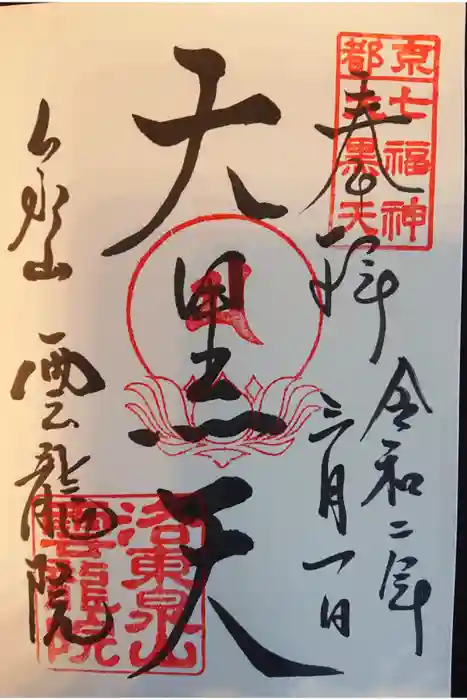 京都
七福神
大黒天
奉拝
令和二年
三月一日
大黒天
泉山 雲龍院
洛東泉山
雲龍院